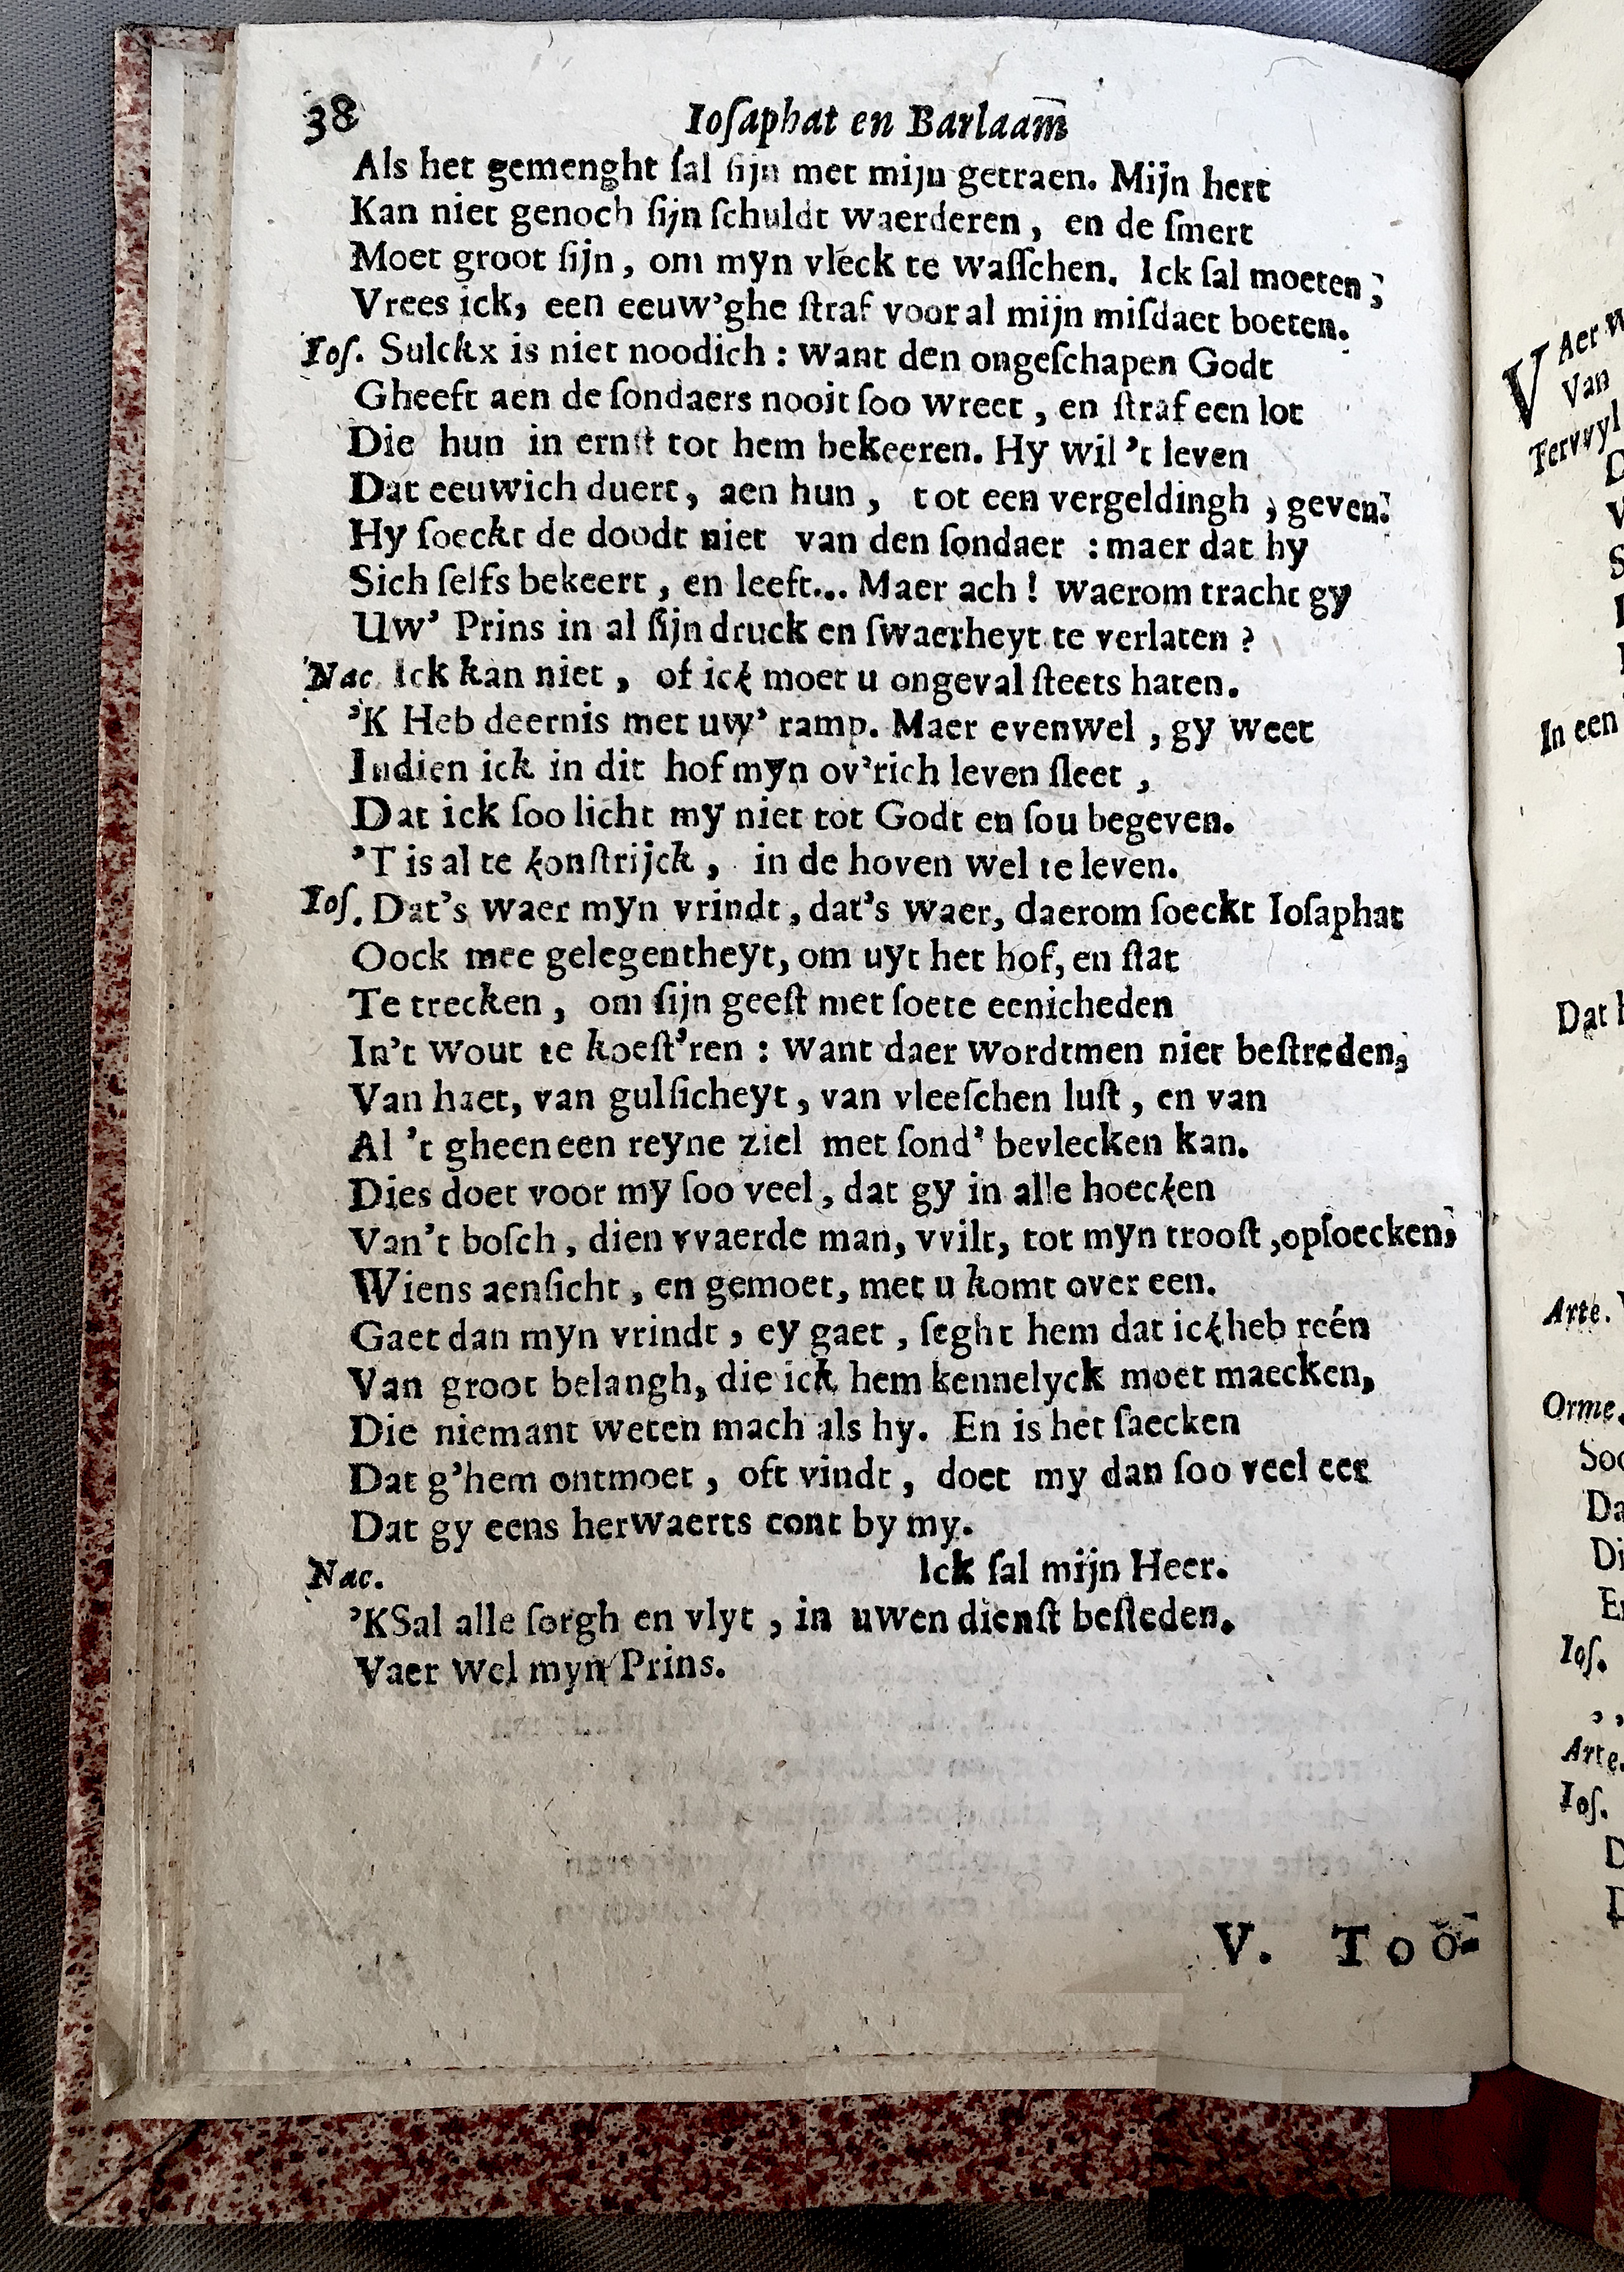 38 Ioſaphat en Barlaam̄
Als het gemenght ſal ſijn met mijn getraen. Mijn hert
Kan niet genoch ſijn ſchuldt waerderen, en de ſmert
Moet groot ſijn, om myn vleck te waſſchen. Ick ſal moeten,
Vrees ick, een eeuw'ghe ſtraf voor al mijn miſdaet boeten.
Ioſ. Sulckx is niet noodich: want den ongeſchapen Godt
Gheeft aen de ſondaers nooit ſoo wreet, en ſtraf een lot
Die hun in ernſt tot hem bekeeren. Hy wil 't leven
Dat eeuwich duert, aen hun, tot een vergeldingh, geven.
Hy ſoeckt de doodt niet van den ſondaer: maer dat hy
Sich ſelfs bekeert, en leeft... Maer ach! waerom tracht gy
Uw' Prins in al ſijn druck en ſwaerheyt te verlaten?
Nac Ick kan niet, of ick moet u ongeval ſteets haten.
'K Heb deernis met uw' ramp. Maer evenwel, gy weet
Indien ick in dit hof myn ov'rich leven ſleet,
Dat ick ſoo licht my niet tot Godt en ſou begeven.
'T is al te konſtrijck, in de hoven wel te leven.
Ioſ. Dat's waer myn vrindt, dat's waer, daerom ſoeckt Ioſaphat
Oock mee gelegentheyt, om uyt het hof, en ſtat
Te trecken, om ſijn geeſt met ſoete eenicheden
In't wout te koeſt'ren: want daer wordtmen niet beſtreden,
Van haet, van gulſicheyt, van vleeſchen luſt, en van
Al 't gheen een reyne ziel met ſond' bevlecken kan.
Dies doet voor my ſoo veel, dat gy in alle hoecken
Van't boſch, dien vvaerde man, vvilt, tot myn trooſt, opſoecken,
Wiens aenſicht, en gemoet, met u komt over een.
Gaet dan myn vrindt, ey gaet, ſeght hem dat ick heb reén
Van groot belangh, die ick hem kennelyck moet maecken,
Die niemant weten mach als hy. En is het ſaecken
Dat g'hem ontmoet, oft vindt, doet my dan ſoo veel eer
Dat gy eens herwaerts comt by my.
Nac. Ick ſal mijn Heer.
'KSal alle ſorgh en vlyt, in uwen dienſt beſteden.
Vaer wel myn Prins.
V. Too-
V Aer
Van
Tervvyl
In een
Dat
Arte.
Orme.
Soo
Da
Di
En
Ioſ.
,,
Arte.
Ioſ.